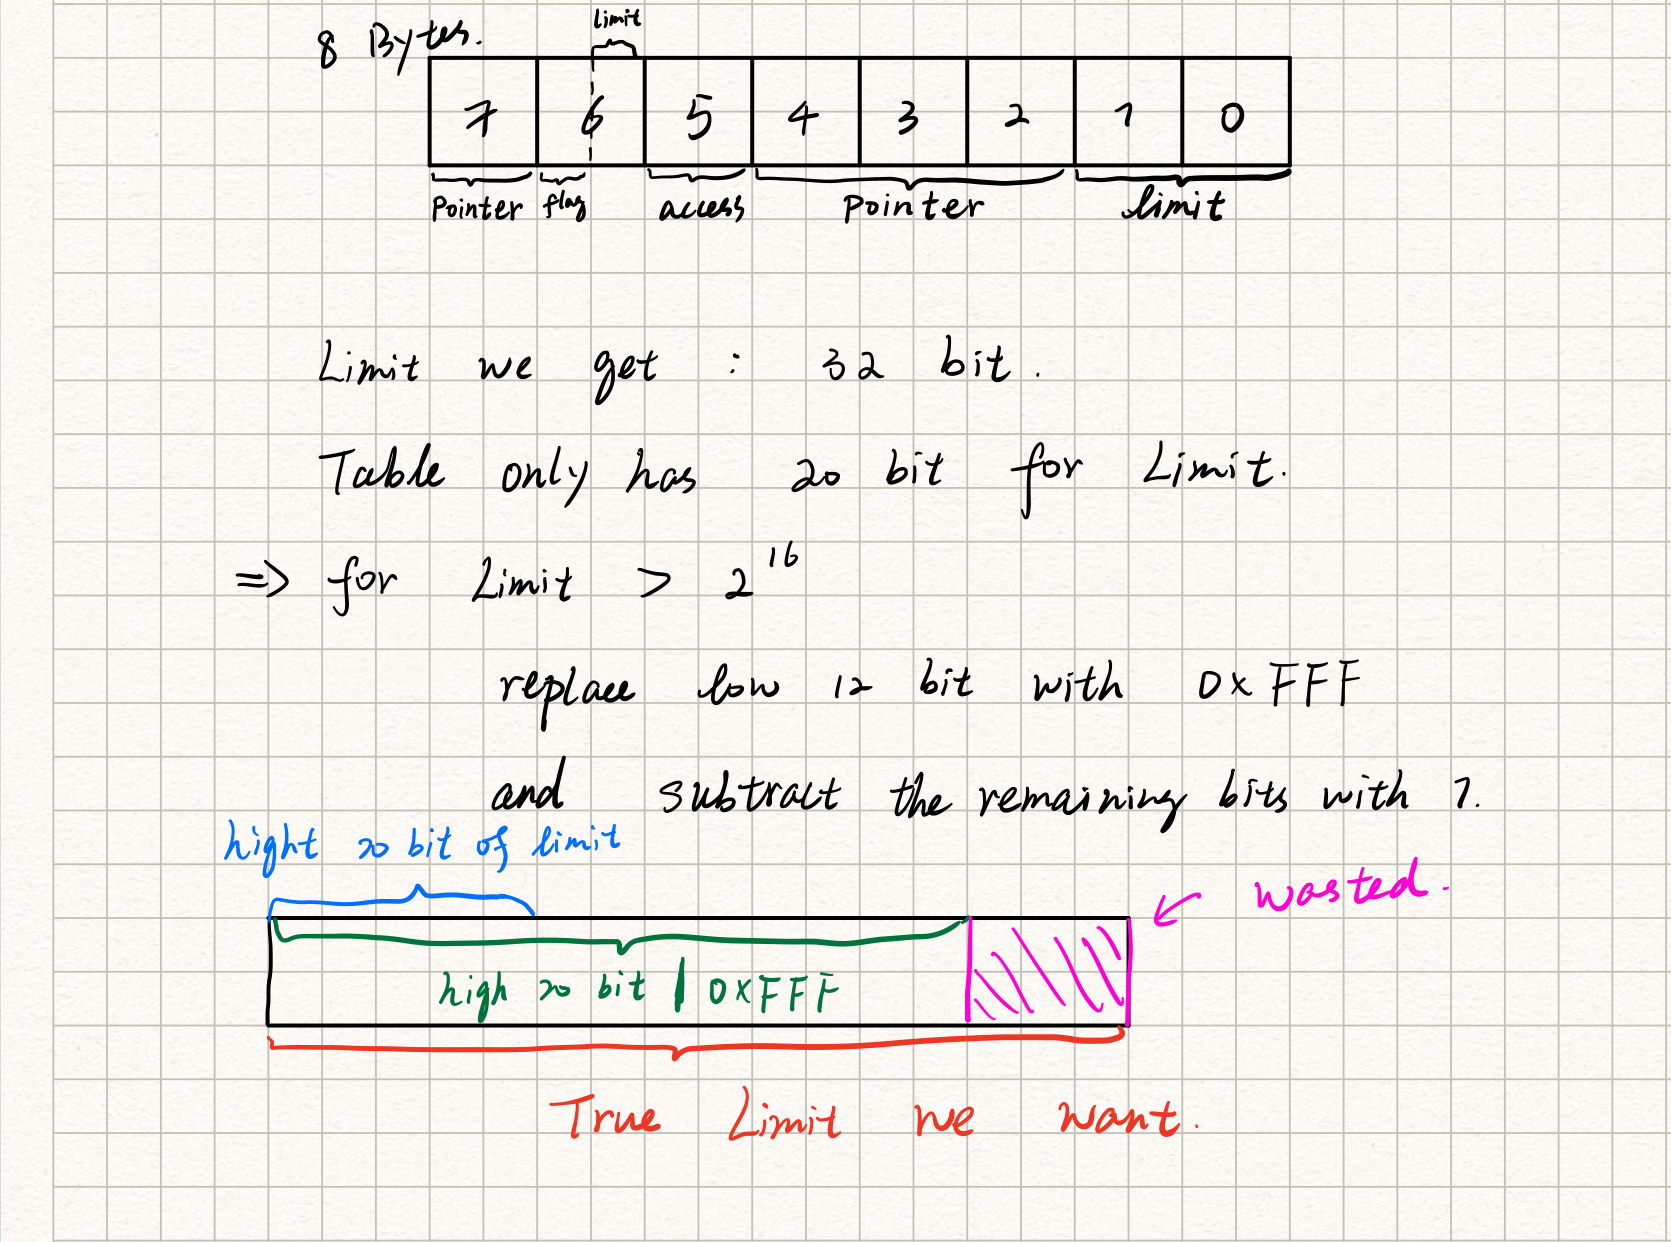 limit
8 Bytes.
7 6 5 4 3 2 1 0
Pointer flag access Pointer limit
Limit we get : 32 bit.
Table only has 20 bit for Limit.
=> for Limit > 2^16
replace low 12 bit with 0xFFF
and subtract the remaining bits with 1.
hight 20 bit of limit
wasted.
high 20 bit | 0xFFF
True Limit we want.